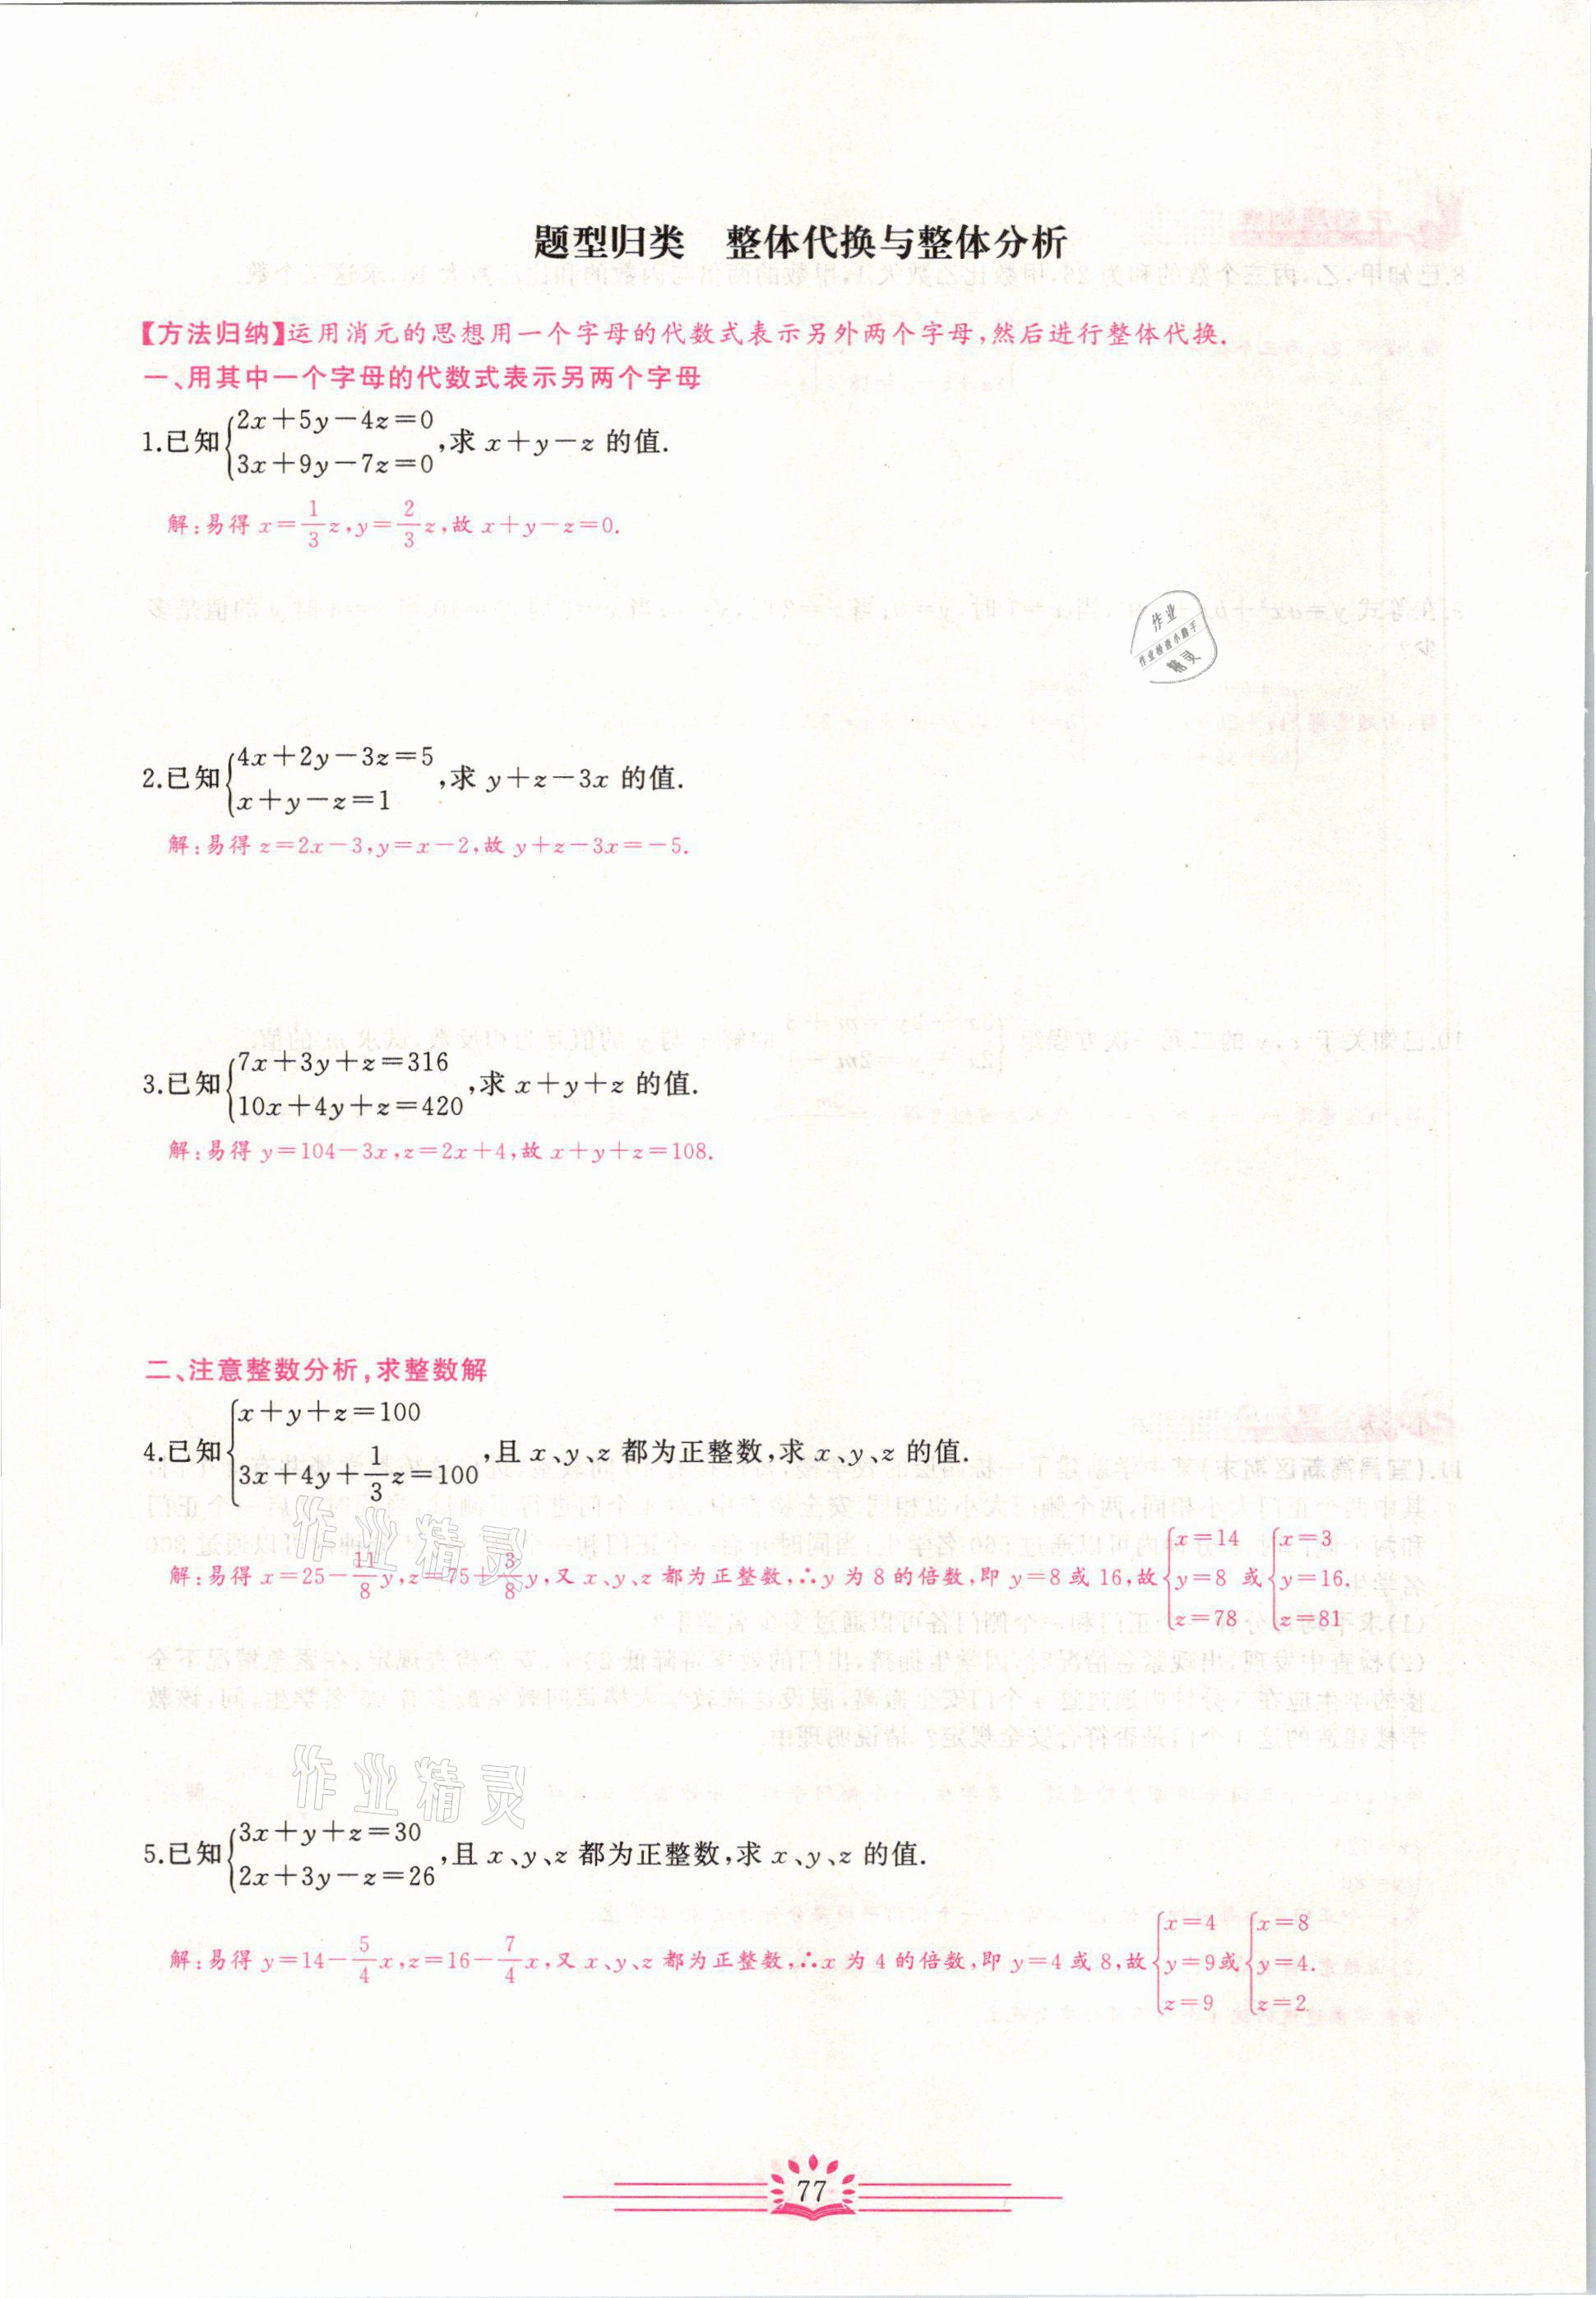 题型归类　整体代换与整体分析
【方法归纳】运用消元的思想用一个字母的代数式表示另外两个字母,然后进行整体代换.
一、用其中一个字母的代数式表示另两个字母
1.已知{2x+5y-4z=0
3x+9y-7z=0,求 x+y-z 的值.
解:易得 x=1/3z,y=2/3z,故 x+y-z=0.
作业
作业检查小助手
精灵
2.已知{4x+2y-3z=5
x+y-z=1,求 y+z-3x 的值.
解:易得 z=2x-3,y=x-2,故 y+z-3x=-5.
3.已知{7x+3y+z=316
10x+4y+z=420,求 x+y+z 的值.
解:易得 y=104-3x,z=2x+4,故 x+y+z=108.
二、注意整数分析,求整数解
4.已知{x+y+z=100
3x+4y+1/3z=100,且 x、y、z 都为正整数,求 x、y、z 的值.
作业精灵
解:易得 x=25-11/8y,z=75+3/8y,又 x、y、z 都为正整数,∴y 为 8 的倍数,即 y=8 或 16,故{x=14 y=8 z=78 或{x=3 y=16. z=81
作业精灵
5.已知{3x+y+z=30
2x+3y-z=26,且 x、y、z 都为正整数,求 x、y、z 的值.
解:易得 y=14-5/4x,z=16-7/4x,又 x、y、z 都为正整数,∴x 为 4 的倍数,即 y=4 或 8,故{x=4 y=9 z=9 或{x=8 y=4. z=2
77